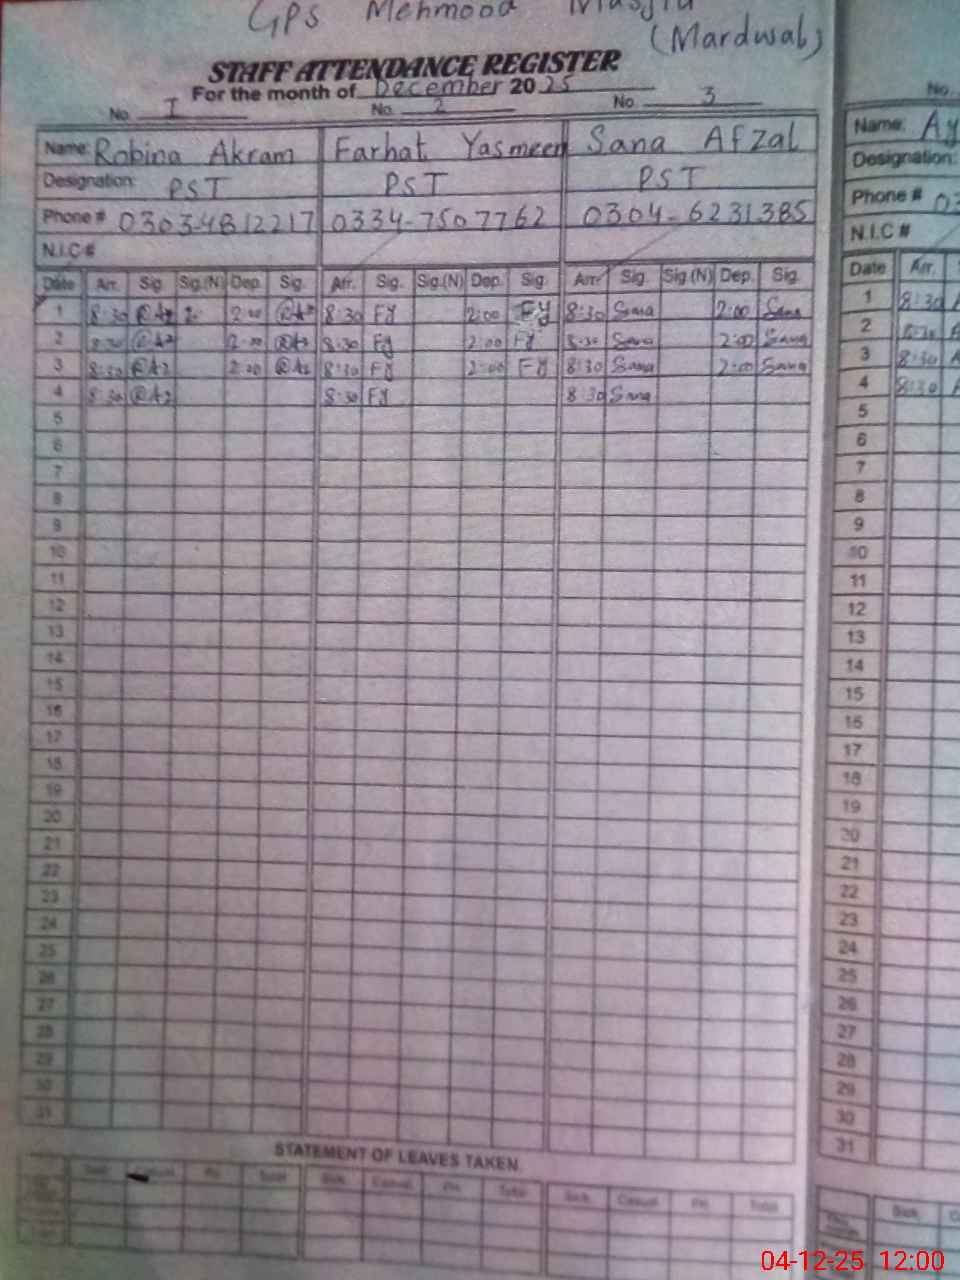 GPS Mehmood Masjid
(Mardwal)
STAFF ATTENDANCE REGISTER
For the month of December 2025
No. I No. 2 No. 3
Name: Robina Akram Farhat Yasmeen Sana Afzal
Designation: PST PST PST
Phone # 03034812217 0334-7507762 0304-6231385
N.I.C #
Date Arr. Sig. Sig.(N) Dep. Sig. Arr. Sig. Sig.(N) Dep. Sig. Arr. Sig. Sig.(N) Dep. Sig.
1 8:30 2:00 8:30 FY 2:00 FY 8:30 Sana 2:00 Sana
2 8:30 2:00 8:30 FY 2:00 FY 8:30 Sana 2:00 Sana
3 8:30 2:00 8:30 FY 2:00 FY 8:30 Sana 2:00 Sana
4 8:30 8:30 FY 8:30 Sana
5
6
7
8
9
10
11
12
13
14
15
16
17
18
19
20
21
22
23
24
25
26
27
28
29
30
31
STATEMENT OF LEAVES TAKEN
Sick Casual Pri. Total Sick Casual Pri. Total Sick Casual Pri. Total
No.
Name: Ay
Designation:
Phone # 03
N.I.C #
Date Arr.
1 8:30
2 8:30
3 8:30
4 8:30
5
6
7
8
9
10
11
12
13
14
15
16
17
18
19
20
21
22
23
24
25
26
27
28
29
30
31
Sick
04-12-25 12:00